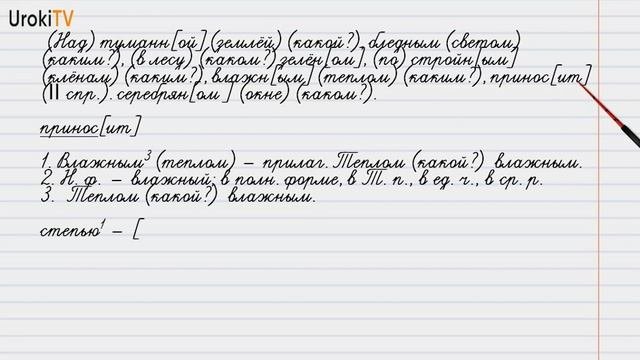 UrokiTV
(Над) туманн[ой] (землёй) (какой?), бледным (светом)
(каким?), (в лесу) (каком?) зелён[ом], (по) стройн[ым]
(клёнам) (каким?), влажн[ым] (теплом) (каким?), принос[ит]
(II спр.). серебрян[ом] (окне) (каком?).
принос[ит]
1. Влажным³ (теплом) – прилаг. Теплом (какой?) влажным.
2. Н. ф. – влажный; в полн. форме, в Т. п., в ед. ч., в ср. р.
3. Теплом (какой?) влажным.
степью¹ – [